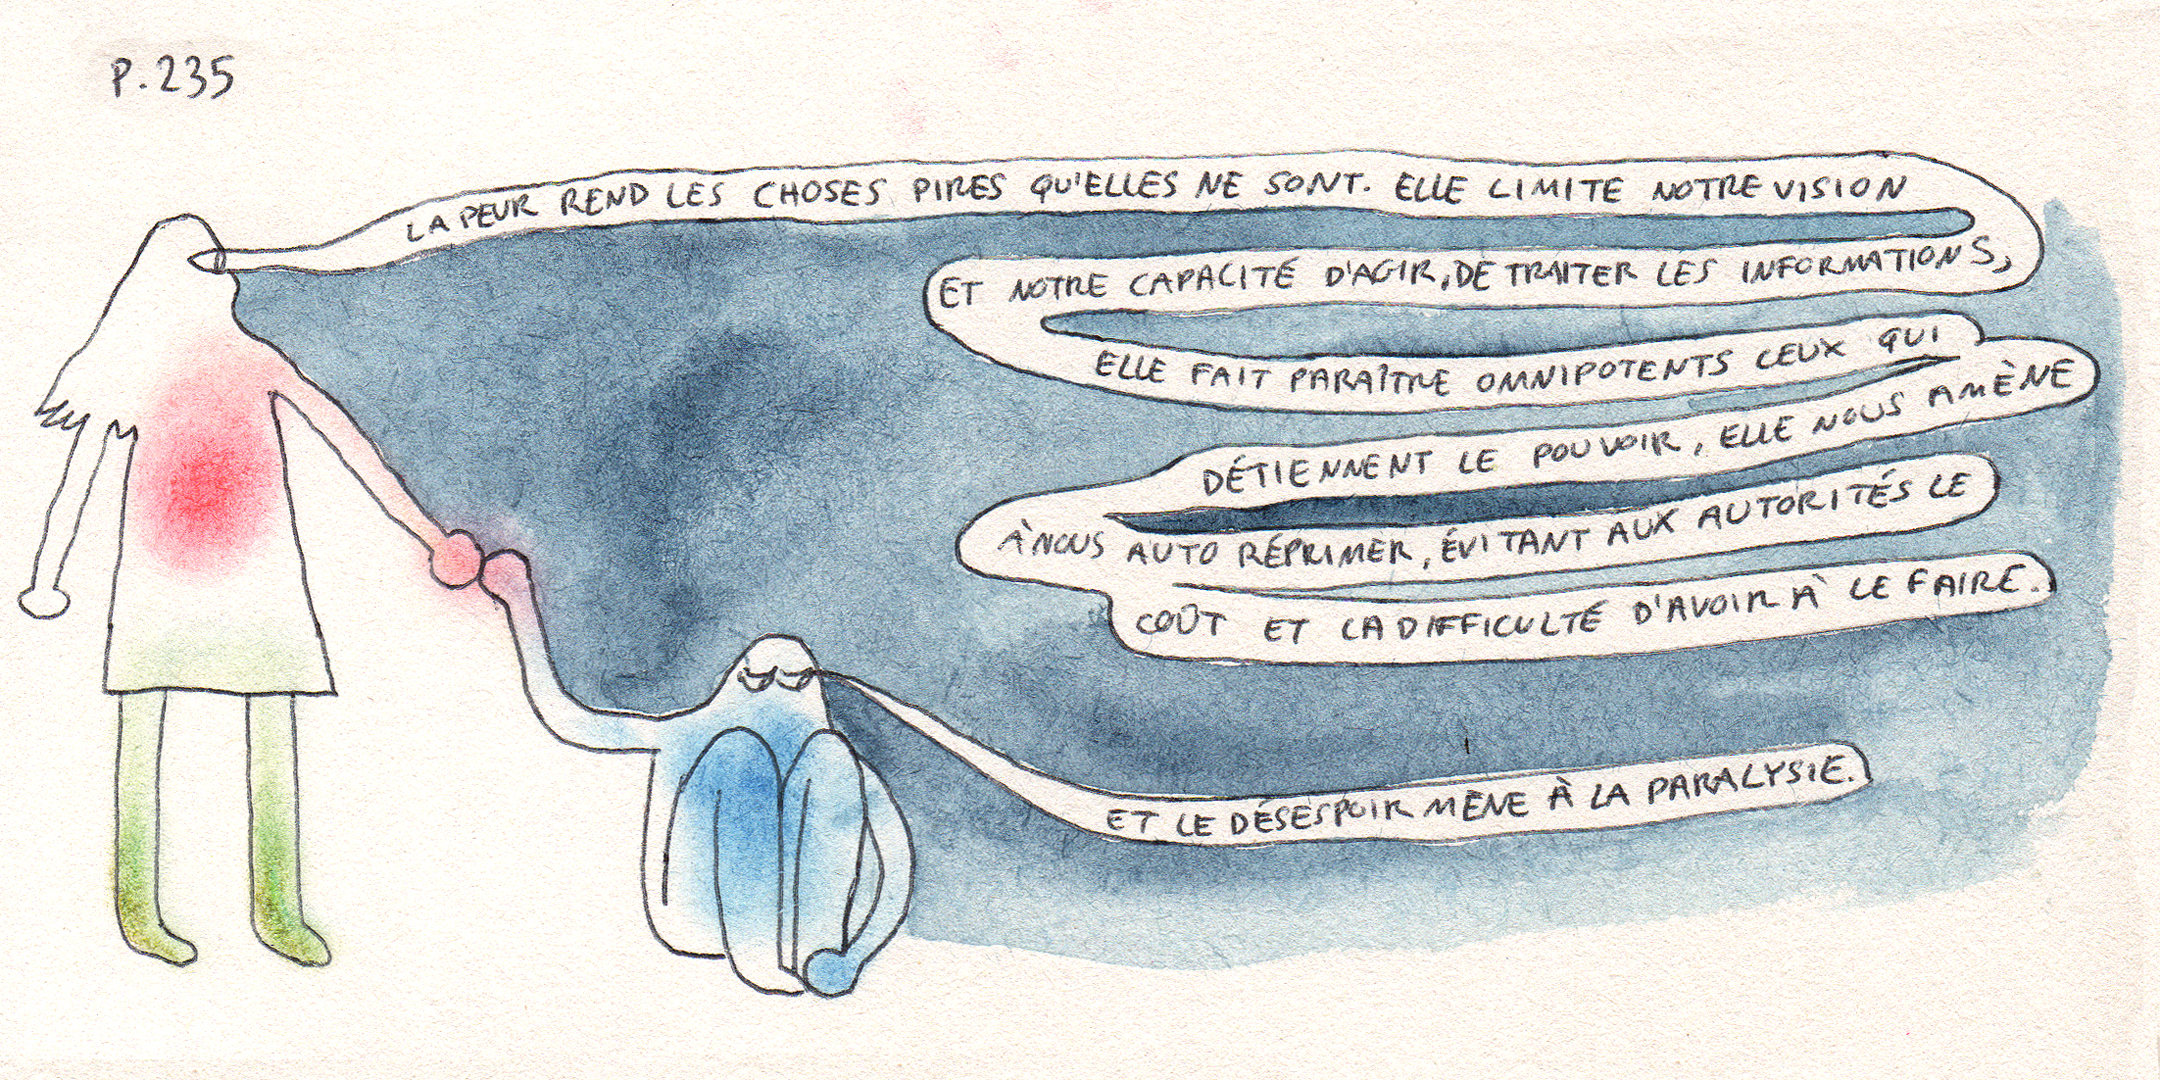 P.235
LA PEUR REND LES CHOSES PIRES QU'ELLES NE SONT. ELLE LIMITE NOTRE VISION
ET NOTRE CAPACITÉ D'AGIR, DE TRAITER LES INFORMATIONS,
ELLE FAIT PARAÎTRE OMNIPOTENTS CEUX QUI
DÉTIENNENT LE POUVOIR, ELLE NOUS AMÈNE
À NOUS AUTO RÉPRIMER, ÉVITANT AUX AUTORITÉS LE
COÛT ET LA DIFFICULTÉ D'AVOIR À LE FAIRE.
ET LE DÉSESPOIR MÈNE À LA PARALYSIE.